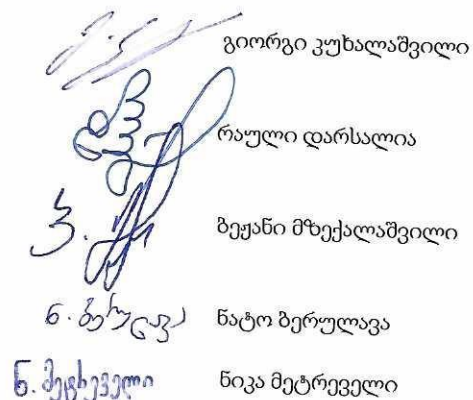 გიორგი კუხალაშვილი
რაული დარსალია
ბეჟანი მზექალაშვილი
ნ. ბერულავა ნატო ბერულავა
ნ. მეტრეველი ნიკა მეტრეველი